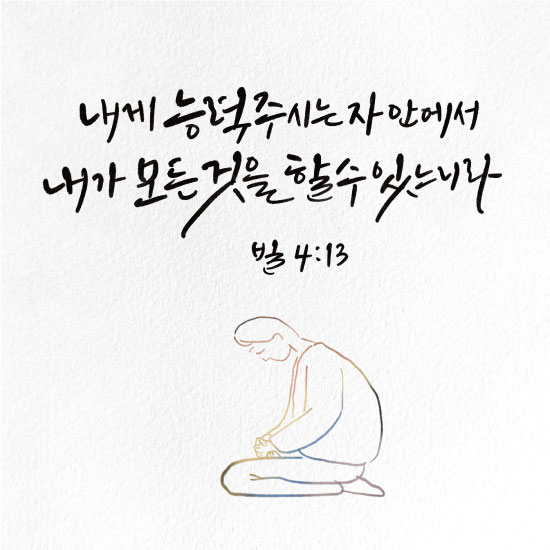 내게 능력주시는 자 안에서
내가 모든것을 할 수 있느니라
빌 4:13